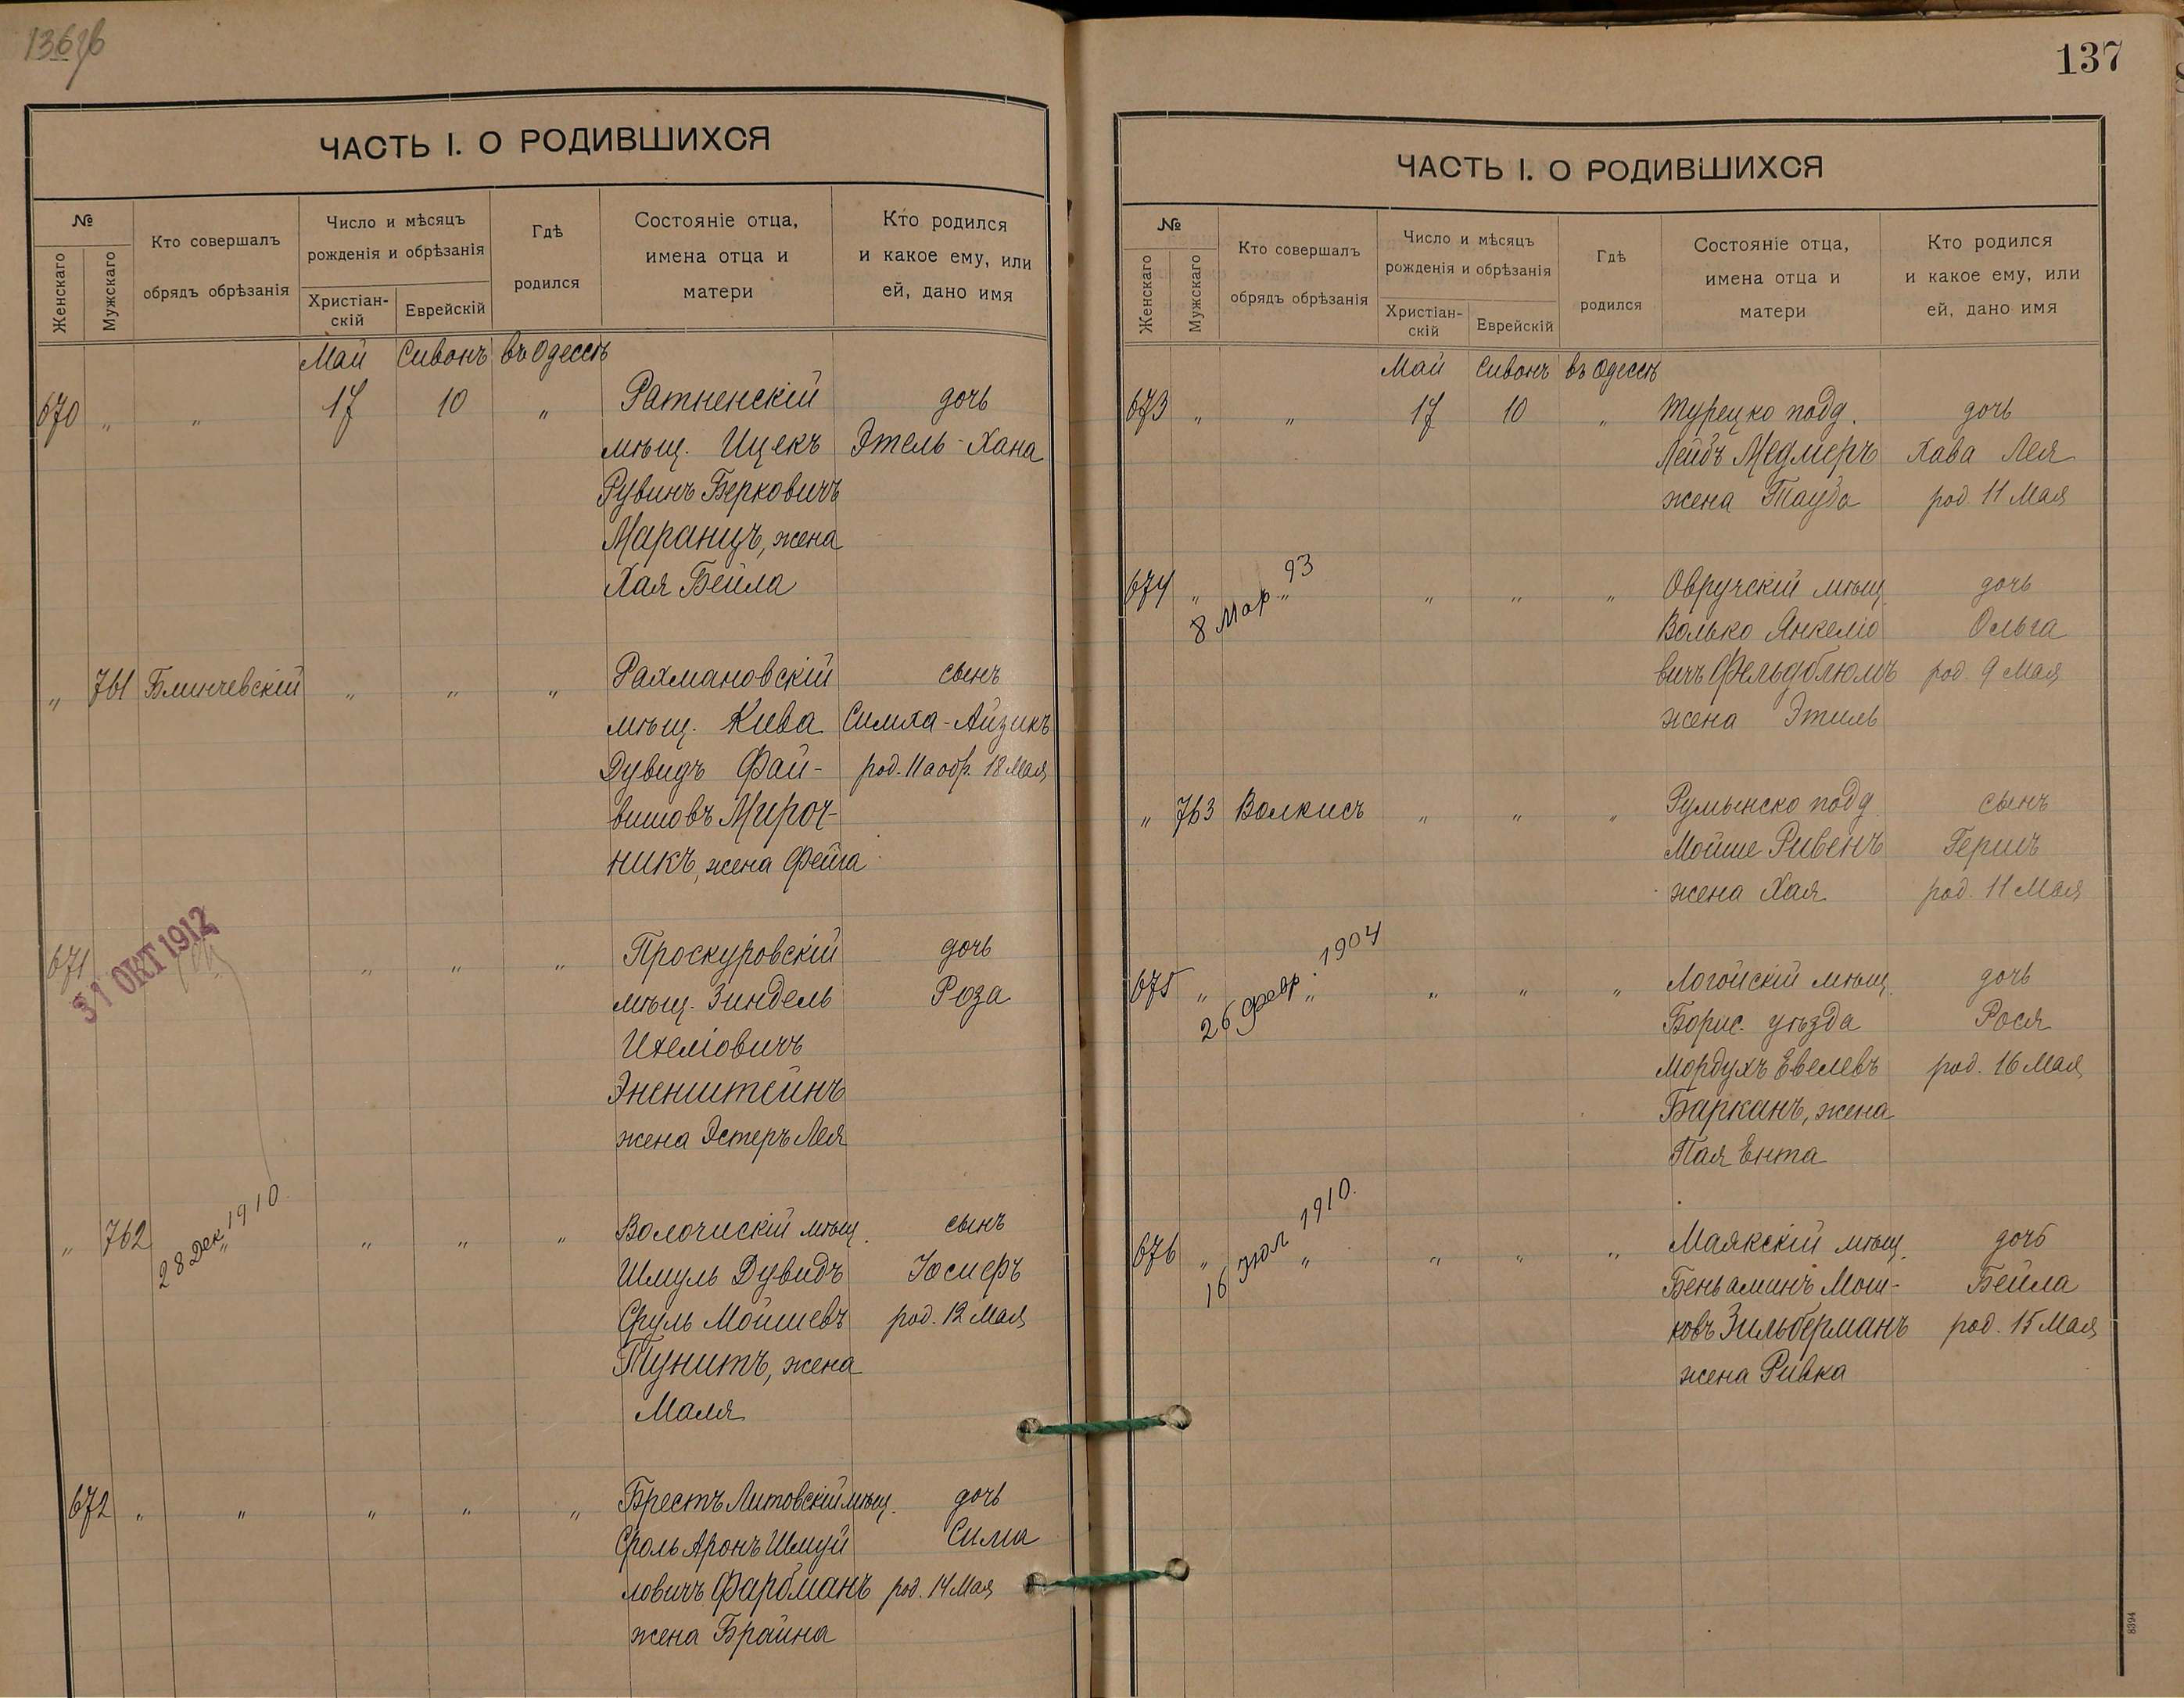 136об
ЧАСТЬ I. О РОДИВШИХСЯ
№
Женскаго
Мужскаго
Кто совершалъ
обрядъ обрѣзанія
Число и мѣсяцъ
рожденія и обрѣзанія
Христіан-
скій
Еврейскій
Гдѣ
родился
Состояніе отца,
имена отца и
матери
Кто родился
и какое ему, или
ей, дано имя
Май Сивонъ въ Одессѣ
670 " " 17 10 " Ратненскій дочь
мѣщ. Ицекъ Этель-Хана
Рувинъ Берковичъ
Маранцъ, жена
Хая Бейла
" 761 Блинчевскій " " " Рахмановскій сынъ
мѣщ. Кива Симха-Айзикъ
Дувидъ Фай- род. 11 а обр. 18 Мая
вишовъ Мироч-
никъ, жена Фейга
671 " " " Проскуровскій дочь
31 ОКТ 1912
мѣщ. Зиндель Роза
Ихеліовичъ
Эненштейнъ
жена Эстеръ Лея
" 762 " " " " Волочискій мѣщ. сынъ
28 Дек 1910
Шмуль Дувидъ Юсиеръ
Сруль Мойшевъ род. 12 Мая
Тунитъ, жена
Маля
672 " " " " " Брестъ Литовскій мѣщ. дочь
Сроль Аронъ Шмуй Сима
ловичъ Фарбманъ род. 14 Мая
жена Брайна
137
ЧАСТЬ I. О РОДИВШИХСЯ
№
Женскаго
Мужскаго
Кто совершалъ
обрядъ обрѣзанія
Число и мѣсяцъ
рожденія и обрѣзанія
Христіан-
скій
Еврейскій
Гдѣ
родился
Состояніе отца,
имена отца и
матери
Кто родился
и какое ему, или
ей, дано имя
Май Сивонъ въ Одессѣ
673 " " 17 10 " Турецко подд. дочь
Лейбъ Медмеръ Хава Лея
жена Тауба род 11 Мая
674 " " " " " Овручскій мѣщ. дочь
8 Мар. 93
Волько Янкеліо Ольга
вичъ Фельдблюмъ род. 9 Мая
жена Этиль
" 763 Волкисъ " " " Румынско подд. сынъ
Мойше Ривенъ Гершъ
жена Хая род. 11 Мая
675 " " " " " Логойскій мѣщ. дочь
26 февр. 1904
Борис. уѣзда Рося
Мордухъ Евелевъ род. 16 Мая
Барканъ, жена
Пая Ента
676 " " " " " Маякскій мѣщ. дочь
16 Июл 1910.
Беньаминъ Мош- Бейла
ковъ Зильберманъ род. 15 Мая
жена Ривка
8394